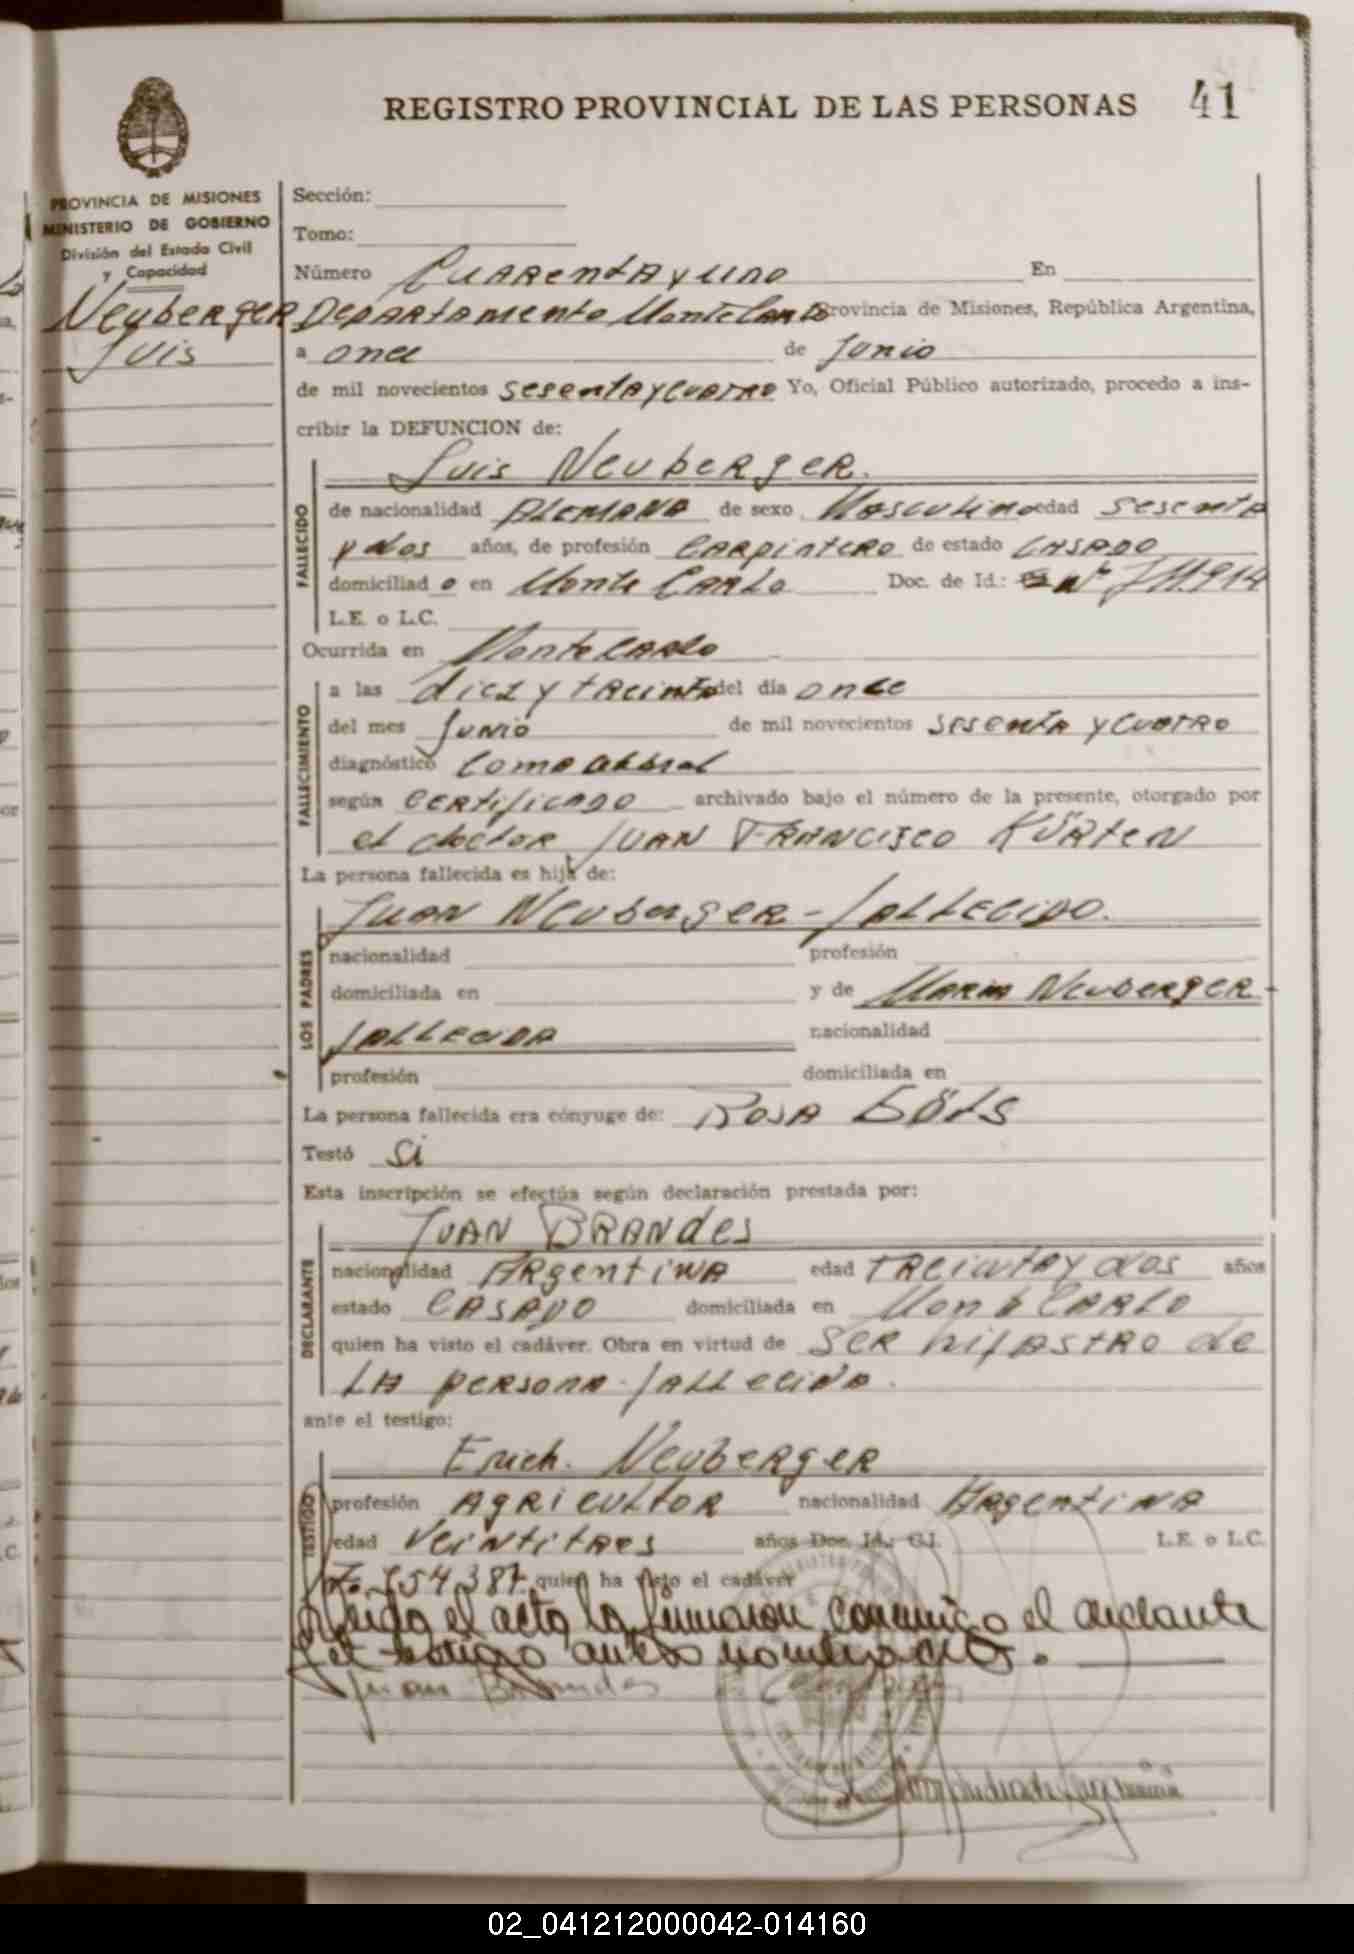 REGISTRO PROVINCIAL DE LAS PERSONAS 41
PROVINCIA DE MISIONES
MINISTERIO DE GOBIERNO
División del Estado Civil
y Capacidad
Neuberger
Luis
Sección:
Tomo:
Número Cuarenta y uno En
Departamento Monte Carlo Provincia de Misiones, República Argentina,
a once de Junio
de mil novecientos sesenta y cuatro Yo, Oficial Público autorizado, procedo a ins-
cribir la DEFUNCION de:
Luis Neuberger.
FALLECIDO
de nacionalidad Alemana de sexo Masculino edad sesenta
y dos años, de profesión Carpintero de estado Casado
domiciliad o en Monte Carlo Doc. de Id.:
L.E. o L.C.
Ocurrida en Monte Carlo
FALLECIMIENTO
a las diez y treinta del día once
del mes Junio de mil novecientos sesenta y cuatro
diagnóstico
según Certificado archivado bajo el número de la presente, otorgado por
el doctor Juan Francisco Kürten
La persona fallecida es hijo de:
LOS PADRES
Juan Neuberger - fallecido.
nacionalidad profesión
domiciliada en y de Maria Neuberger -
fallecida nacionalidad
profesión domiciliada en
La persona fallecida era cónyuge de: Rosa
Testó Si
Esta inscripción se efectúa según declaración prestada por:
DECLARANTE
Juan Brandes
nacionalidad Argentina edad treinta y dos años
estado Casado domiciliada en Monte Carlo
quien ha visto el cadáver. Obra en virtud de ser hijastro de
la persona fallecida.
ante el testigo:
TESTIGO
Erich. Neuberger
profesión Agricultor nacionalidad Argentina
edad Veintitres años Doc. Id.: C.I. L.E. o L.C.
554.387. quien ha visto el cadáver
el acto la firmaron conmigo el declarante
y el testigo antes nombrados.
Juan Brandes
02_041212000042-014160